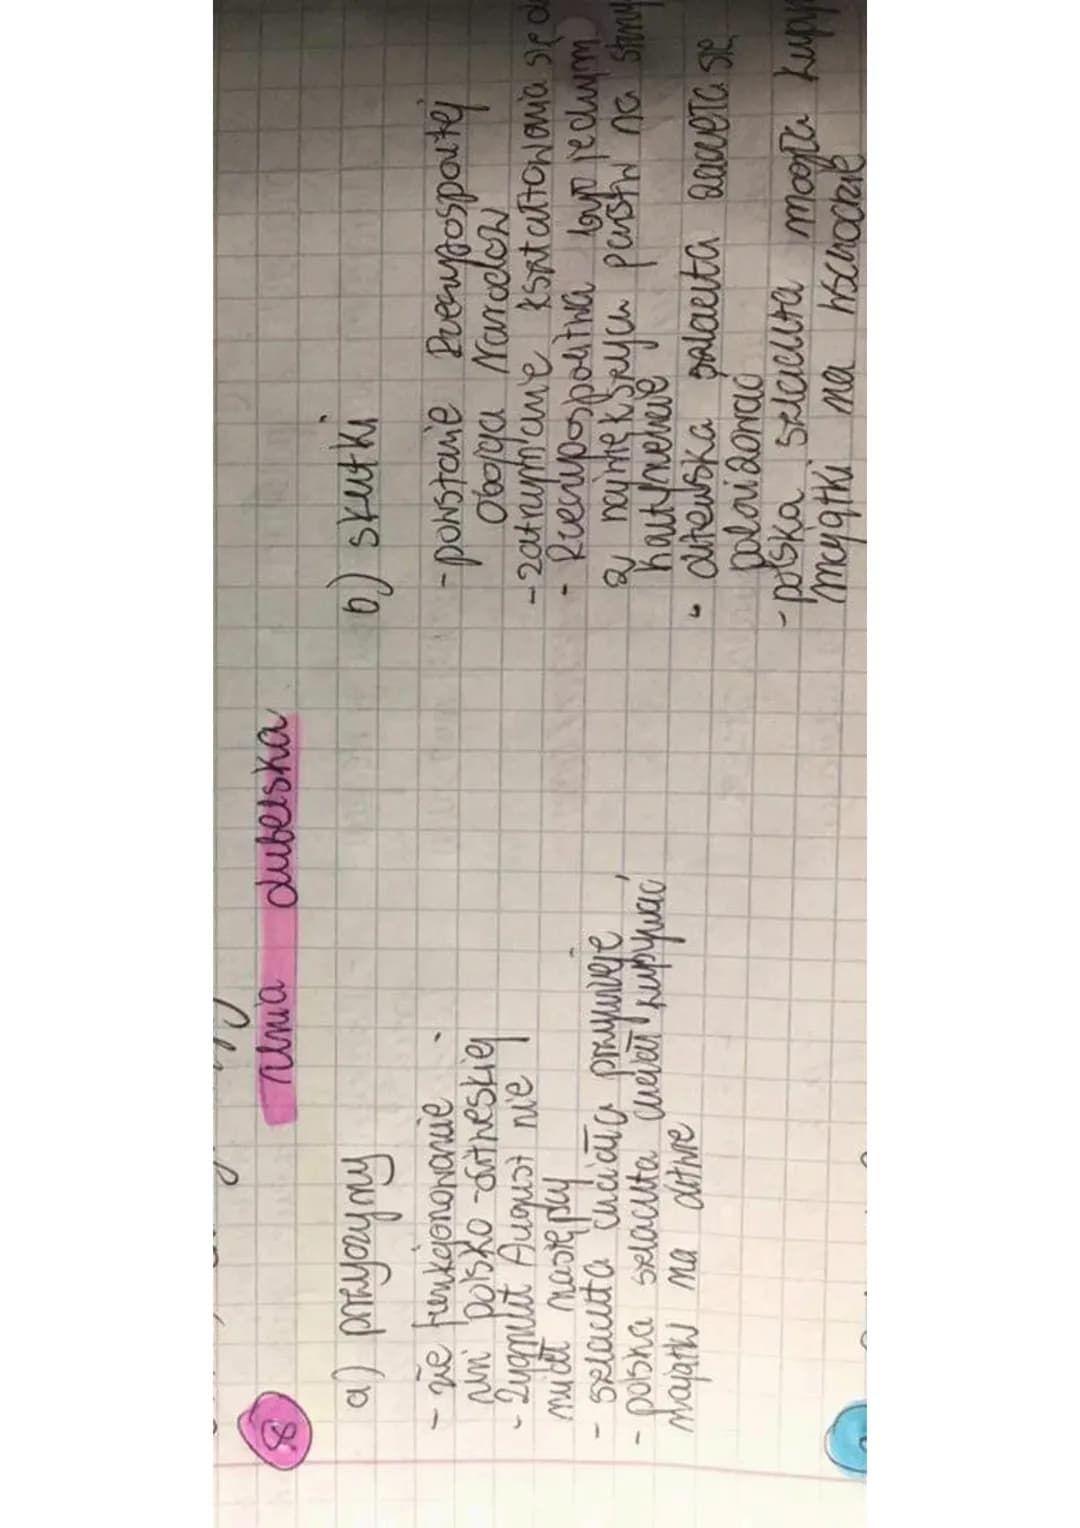 8
Unia Lubelska
a) przyczyny
- złe funkcjonowanie
unii polsko-litweskiej
- Zygmunt August nie
miał następcy
- szlachta chciała przywileje
- polska szlachta chciała kupywać
majątki na Litwie
b) skutki
- powstanie Rzeczypospolitej
Obojga Narodów
- zatrzymanie kształtowania się
- Rzeczpospolitwa był jednym
z największych państw na
kontynencie
- Litewska szlachta zaczęła się
polonizować
- polska szlachta mogła
majątki na wschodzie